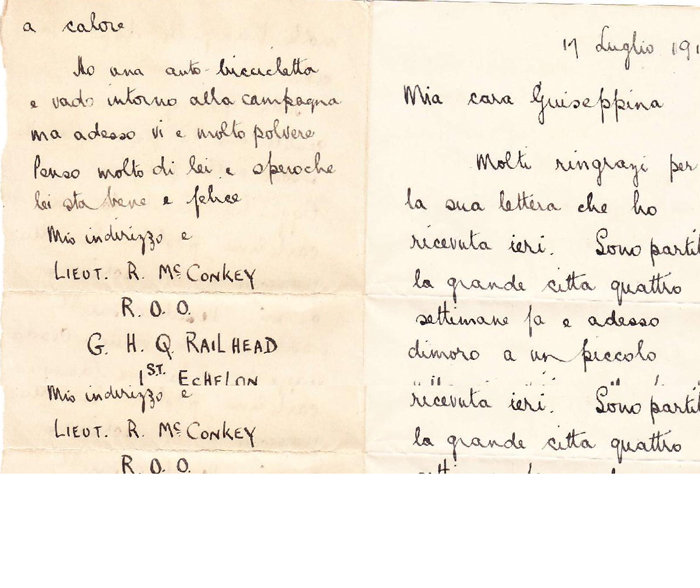 a calore
Ho una auto-bicicletta
e vado intorno alla campagna
ma adesso vi e molto polvere
Penso molto di lei e speroche
lei sta bene e felice
Mio indirizzo e
LIEUT. R. McCONKEY
R. O. O.
G. H. Q. RAILHEAD
1ST. ECHELON
Mio indirizzo e
LIEUT. R. McCONKEY
R. O. O.
17 Luglio 191
Mia cara Guiseppina
Molti ringrazi per
la sua lettera che ho
ricevuta ieri. Sono partit
la grande citta quattro
settimane fa e adesso
dimoro a un piccolo
ricevuta ieri. Sono partit
la grande citta quattro